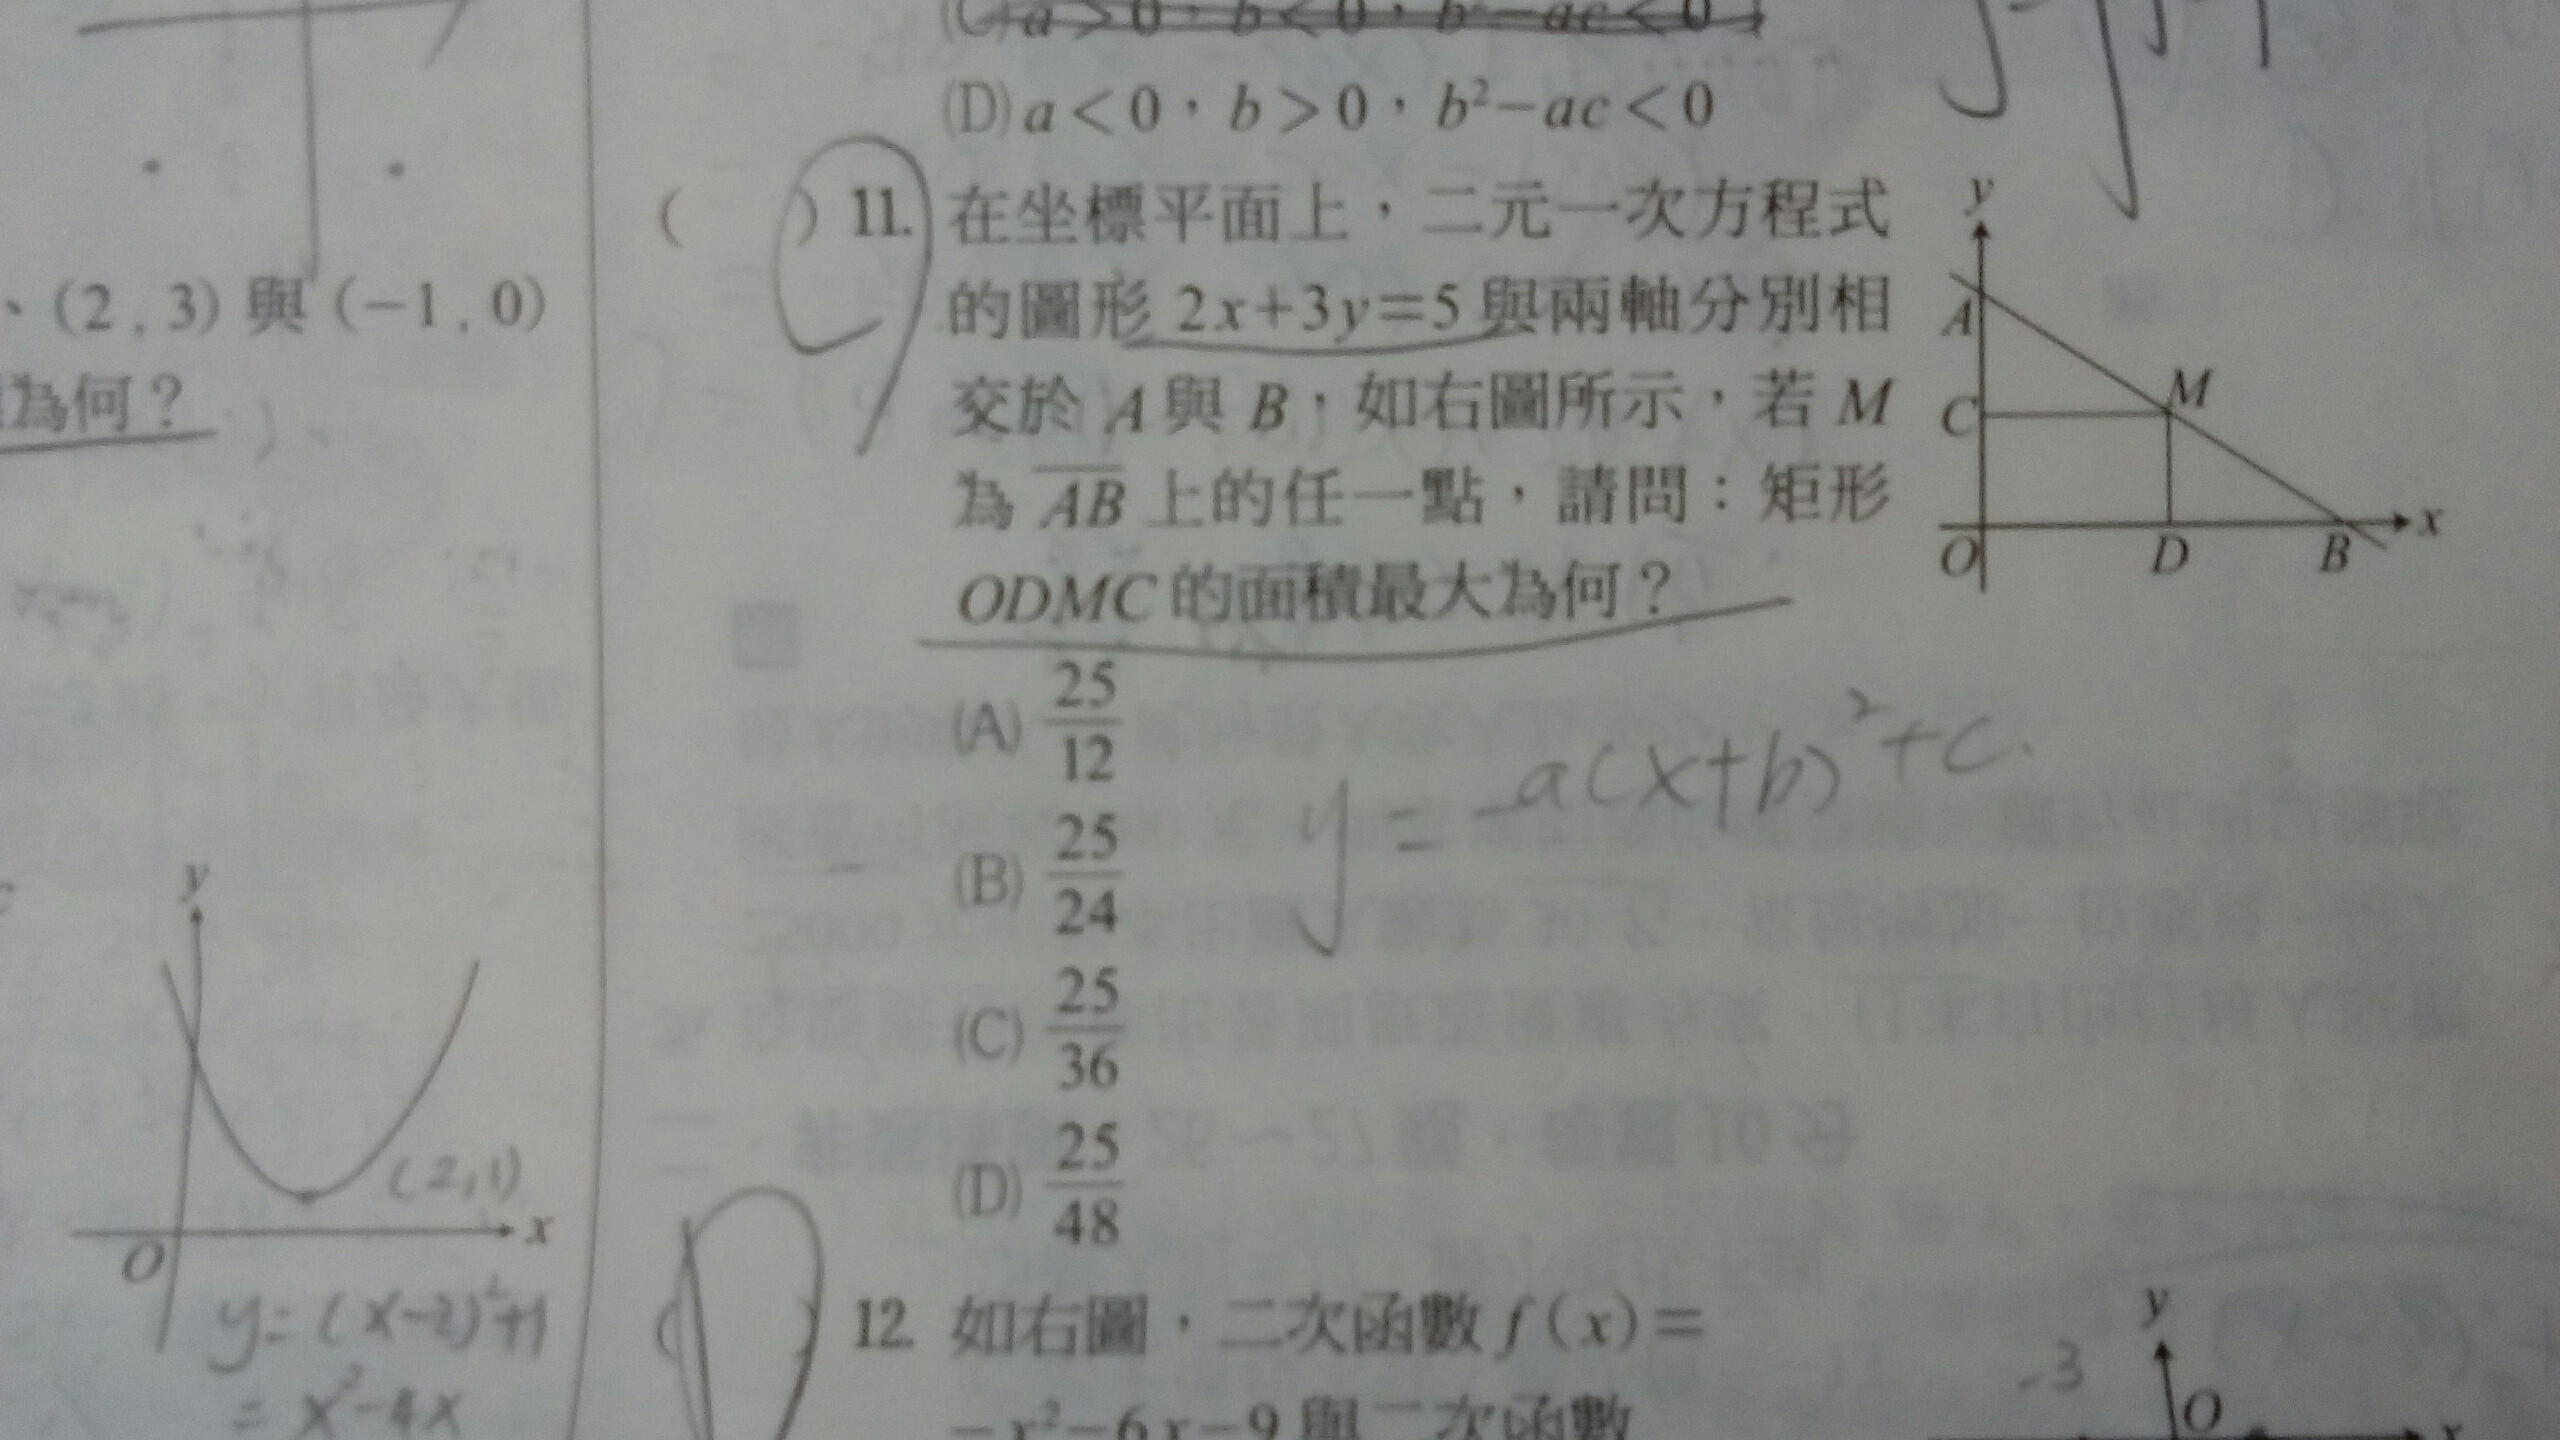 、(2 , 3) 與 (−1 , 0)
為何？
y
(2,1)
x
O
y=(x-2)²+1
= x²-4x
(C) a>0，b<0，b²−ac<0
(D) a<0，b>0，b²−ac<0
( ) 11. 在坐標平面上，二元一次方程式
的圖形 2x+3y=5 與兩軸分別相
交於 A 與 B，如右圖所示，若 M
為 AB 上的任一點，請問：矩形
ODMC 的面積最大為何？
y
A
M
C
x
O
D
B
(A) 25/12
y = a(x+b)²+c
(B) 25/24
(C) 25/36
(D) 25/48
12. 如右圖，二次函數 f(x)=
−x²−6x−9 與二次函數
y
-3
O
x